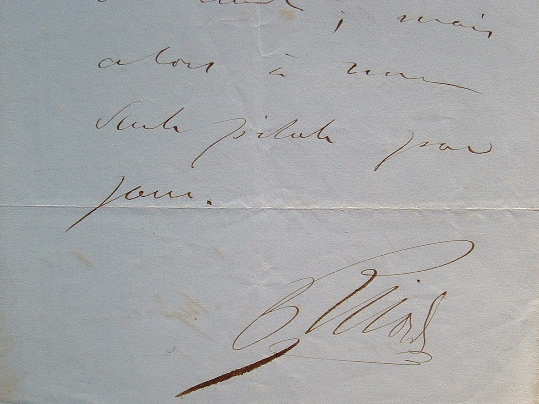 ; mais
alors à une
seule pilule par
jour.